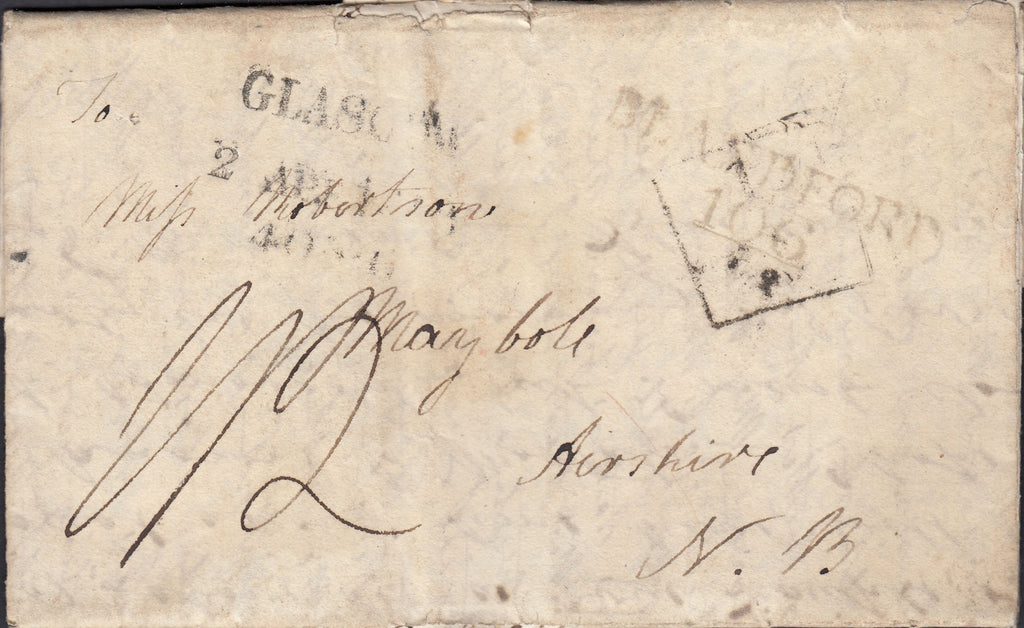 To
GLASGOW
2 APR
Miss Robertson
BLANDFORD
106
Maybole
1/2
Airshire
N. B